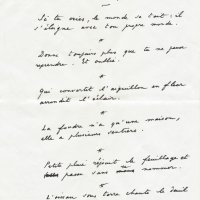 Si tu cries, le monde se tait : il
s'éloigne avec ton propre monde.
*
Donne toujours plus que tu ne peux
reprendre. Et oublie.
*
Qui convertit l'aiguillon en fleur
arrondit l'éclair.
*
La foudre n'a qu'une maison,
elle a plusieurs sentiers.
*
Petite pluie réjouit le feuillage et
passe sans se nommer.
*
L'oiseau sous terre chante le deuil